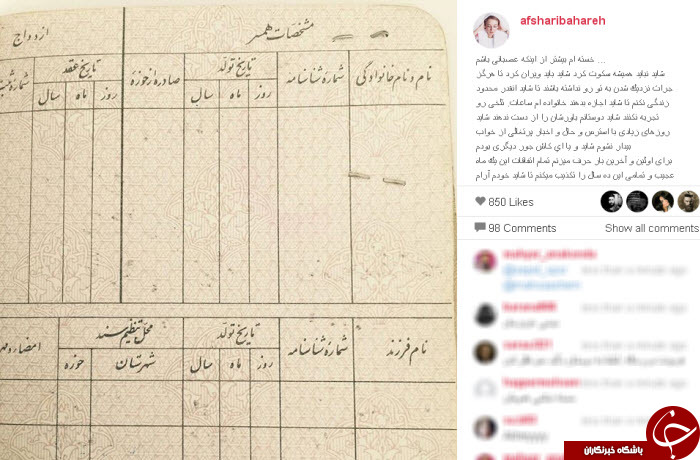 مشخصات همسر
ازدواج
نام و نام خانوادگی
شماره شناسنامه
تاریخ تولد
روز
ماه
سال
صادره از حوزه
تاریخ عقد
روز
ماه
سال
نام فرزند
شماره شناسنامه
تاریخ تولد
روز
ماه
سال
محل تنظیم سند
شهرستان
حوزه
afsharibahareh
خسته ام بیشتر از اینکه عصبانی باشم ...
شاید نباید همیشه سکوت کرد شاید باید ویران کرد تا هرگز
جرات نزدیك شدن به تو رو نداشته باشند تا شاید انقدر محدود
زندگی نکنم تا شاید اجازه بدهند خانواده ام ساعات تلخی رو
تجربه نکنند شاید دوستانم باورشان را از دست ندهند شاید
روزهای زیادی با استرس و حال و اخبار پرتغالی از خواب
بیدار نشوم شاید و یا ای کاش جور دیگری بودم
برای اولین و آخرین بار حرف میزنم تمام اتفاقات این یك ماه
عجیب و تمامی این ده سال را تکذیب میکنم تا شاید خودم آرام
850 Likes
98 Comments
Show all comments
باشگاه خبرنگاران